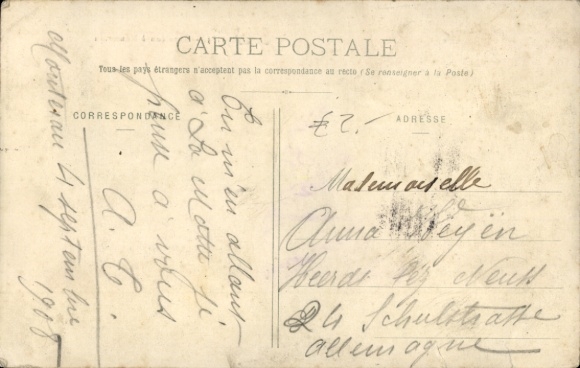 CARTE POSTALE
Tous les pays étrangers n'acceptent pas la correspondance au recto (Se renseigner à la Poste)
CORRESPONDANCE
ADRESSE
£2.-
4 septembre 1908
En m'en allant
à La Motte je
pense à vous
A. T.
Mademoiselle
Anna
Heerdt Neuss
24 Schulstrasse
allemagne